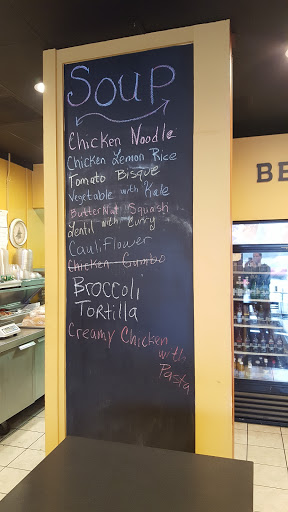 Soup
Chicken Noodle
Chicken Lemon Rice
Tomato Bisque
Vegetable with Kale
Butternut Squash
Lentil with Curry
Cauliflower
Chicken Gumbo
Broccoli
Tortilla
Creamy Chicken
with
Pasta
BE